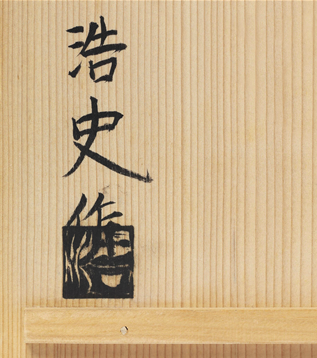 浩史作